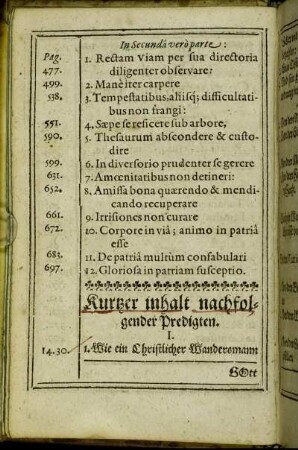 In Secundâ verò parte:
Pag.
477. 1. Rectam viam per sua directoria
diligenter observare?
499. 2. Manè iter carpere
538. 3. Tempestatibus, aliisq; difficultati-
bus non frangi:
551. 4. Sæpe se reficere sub arbore,
590. 5. Thesaurum abscondere & custo-
dire
599. 6. In diversorio prudenter se gerere
631. 7. Amœnitatibus non detineri:
652. 8. Amissa bona quærendo & men di-
cando recuperare
661. 9. Irrisiones non curare
672. 10. Corpore in viâ; animo in patriâ
esse
683. 11. De patriâ multùm confabulari
697. 12. Gloriosa in patriam susceptio.
Kurtzer inhalt nachfol-
gender Predigten.
I.
14.30. 1. Wie ein Christlicher Wandersmann
GOtt